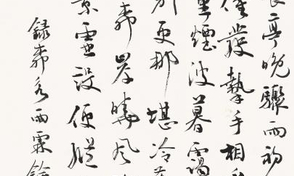 長亭晚驟雨初
催發執手相看
里煙波暮靄
別更那堪冷落
柳岸曉風
景虛設便縱
錄柳永雨霖鈴